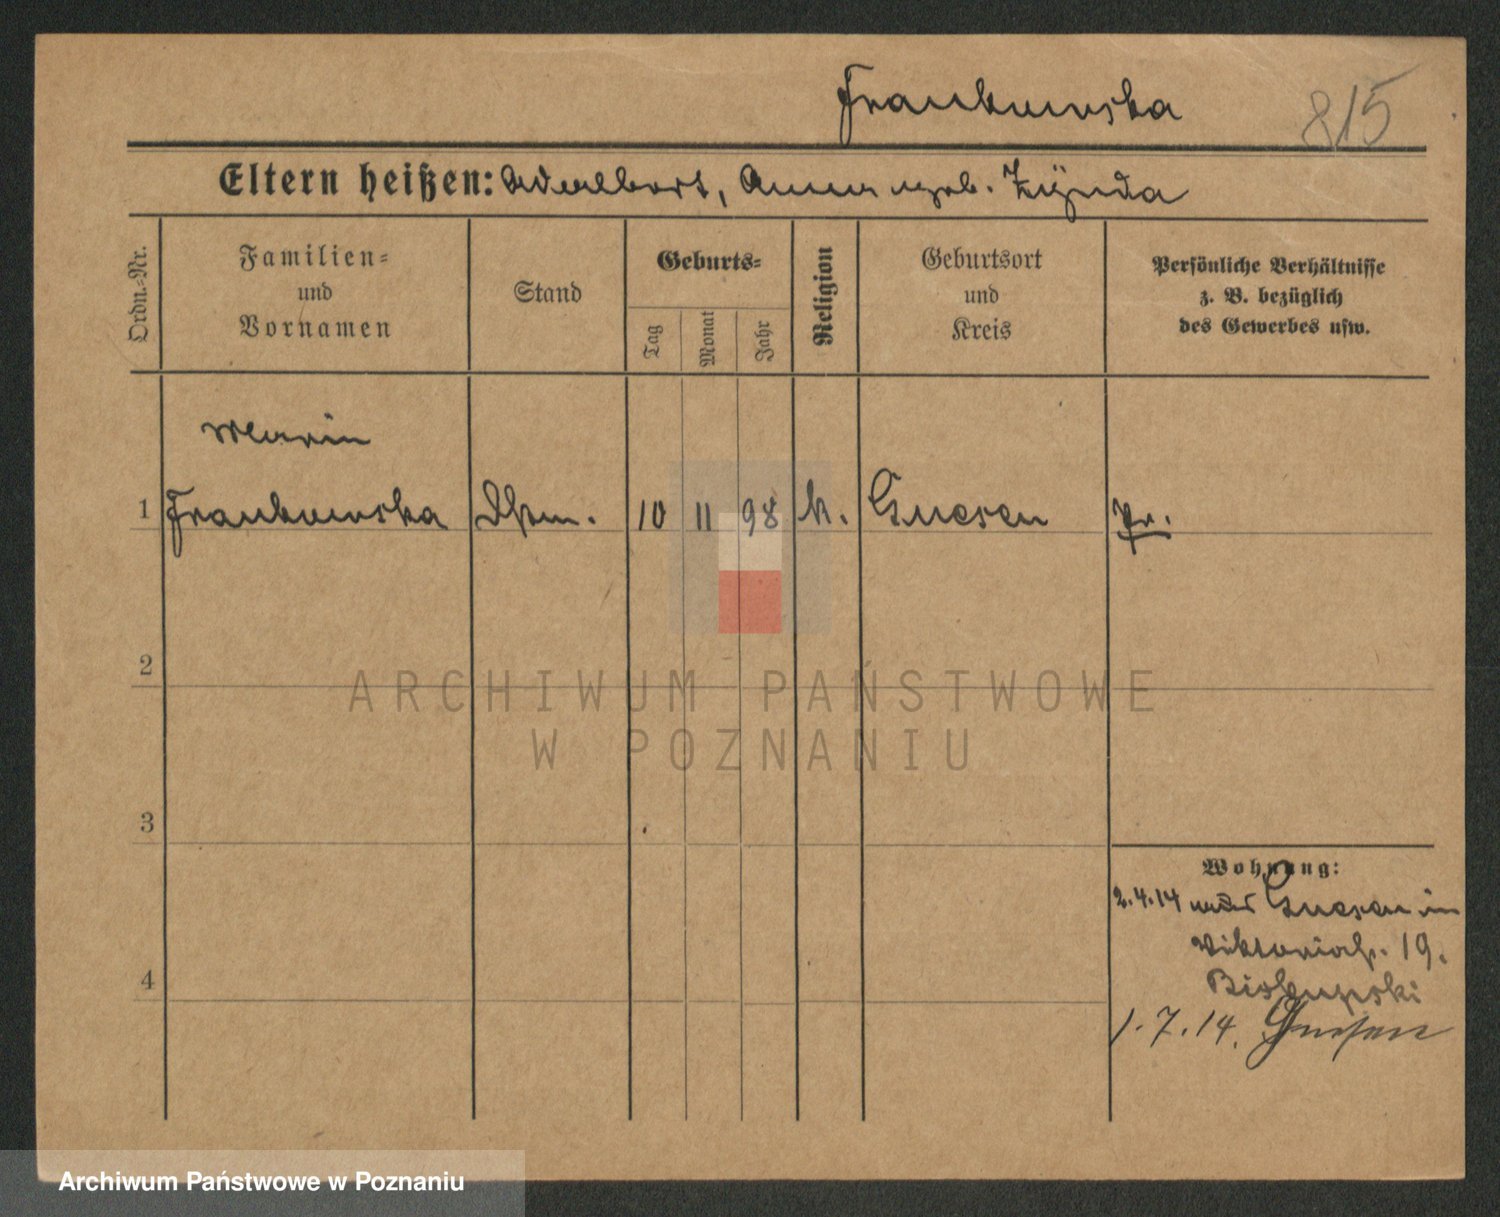 Frankowska 815
Eltern heißen: Adalbert, Anna geb. Zÿnda
Ordn.-Nr.
Familien-
und
Vornamen
Stand
Geburts-
Tag
Monat
Jahr
Religion
Geburtsort
und
Kreis
Persönliche Verhältnisse
z. B. bezüglich
des Gewerbes usw.
Marie
1 Frankowska 10 11 98 k. Gnesen Pr.
2
3
4
Wohnung:
2.4.14 Gnesen in
19.
Biskupski
1.7.14. Gnesen
ARCHIWUM PAŃSTWOWE
W POZNANIU
Archiwum Państwowe w Poznaniu